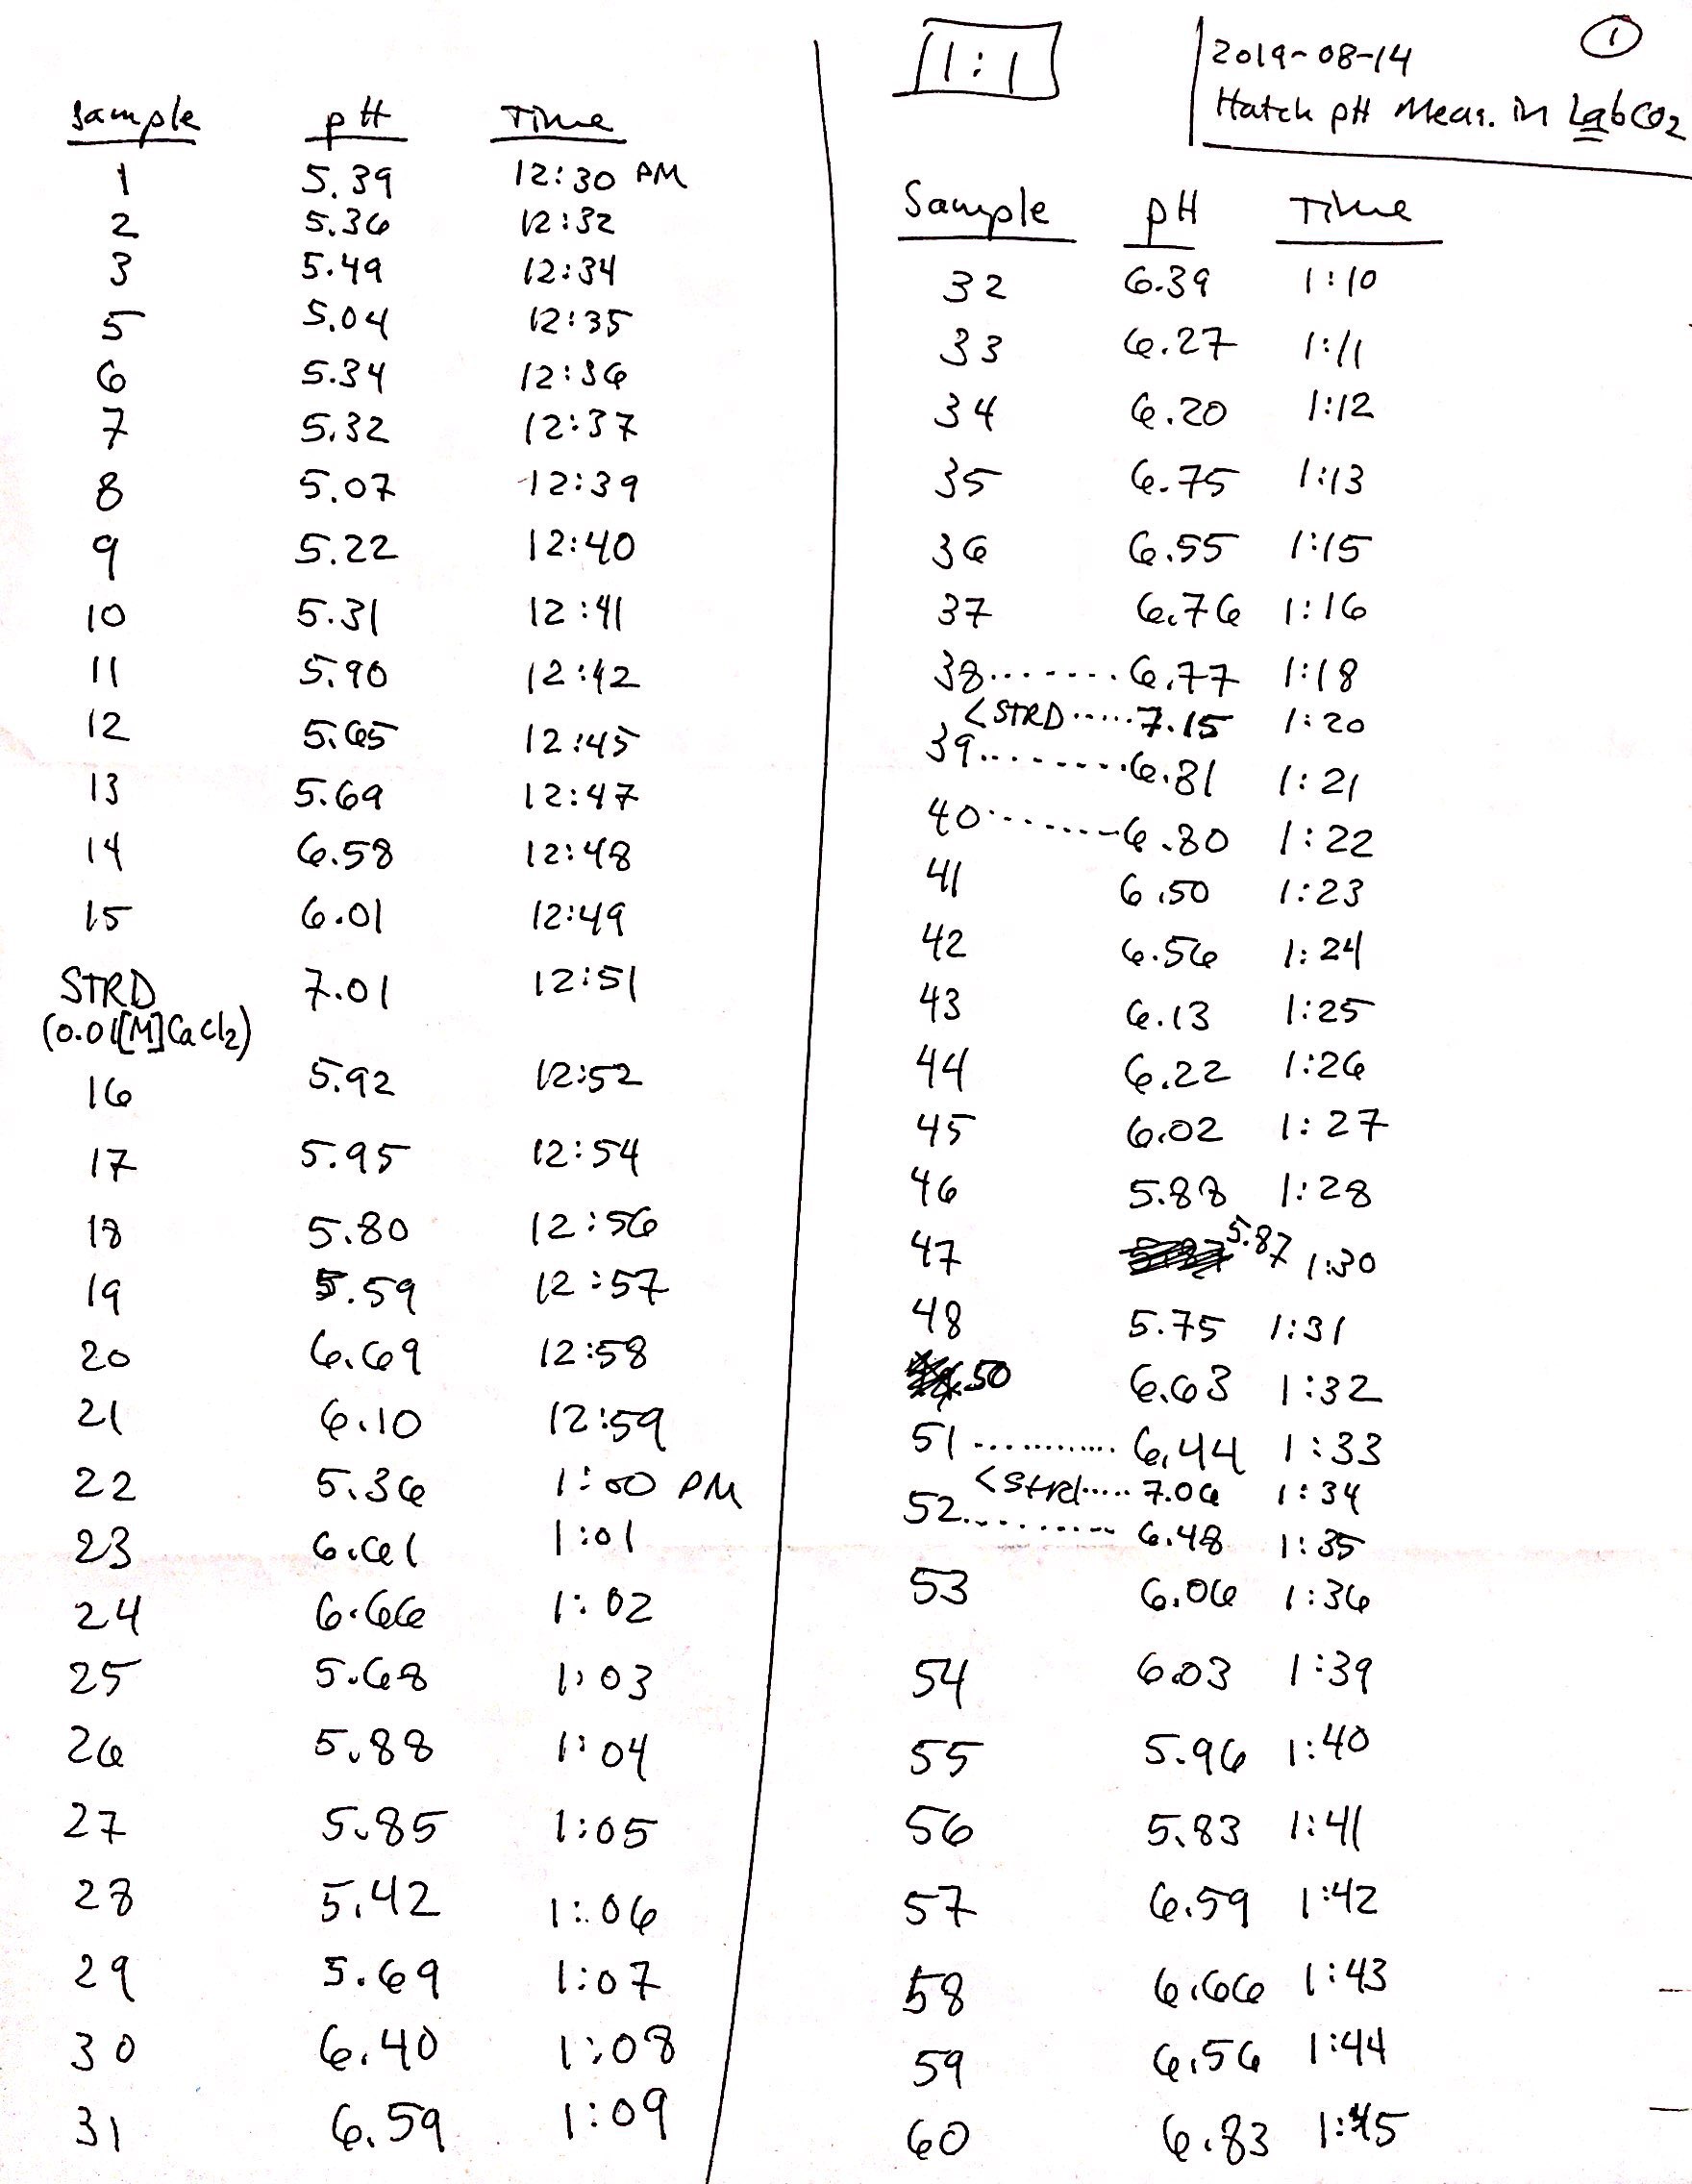 Sample pH Time
1 5.39 12:30 PM
2 5.36 12:32
3 5.49 12:34
5 5.04 12:35
6 5.34 12:36
7 5.32 12:37
8 5.07 12:39
9 5.22 12:40
10 5.31 12:41
11 5.90 12:42
12 5.65 12:45
13 5.69 12:47
14 6.58 12:48
15 6.01 12:49
STRD 7.01 12:51
(0.01[M]CaCl2)
16 5.92 12:52
17 5.95 12:54
18 5.80 12:56
19 5.59 12:57
20 6.69 12:58
21 6.10 12:59
22 5.36 1:00 PM
23 6.61 1:01
24 6.66 1:02
25 5.68 1:03
26 5.88 1:04
27 5.85 1:05
28 5.42 1:06
29 5.69 1:07
30 6.40 1:08
31 6.59 1:09
1:1
2019-08-14 1
Hatch pH Meas. in Lab CO2
Sample pH Time
32 6.39 1:10
33 6.27 1:11
34 6.20 1:12
35 6.75 1:13
36 6.55 1:15
37 6.76 1:16
38 ....... 6.77 1:18
<STRD ..... 7.15 1:20
39 ........ 6.81 1:21
40 ....... 6.80 1:22
41 6.50 1:23
42 6.56 1:24
43 6.13 1:25
44 6.22 1:26
45 6.02 1:27
46 5.88 1:28
47 5.87 1:30
48 5.75 1:31
50 6.63 1:32
51 ............ 6.44 1:33
<Strd ..... 7.06 1:34
52 .......... 6.48 1:35
53 6.06 1:36
54 6.03 1:39
55 5.96 1:40
56 5.83 1:41
57 6.59 1:42
58 6.66 1:43
59 6.56 1:44
60 6.83 1:45